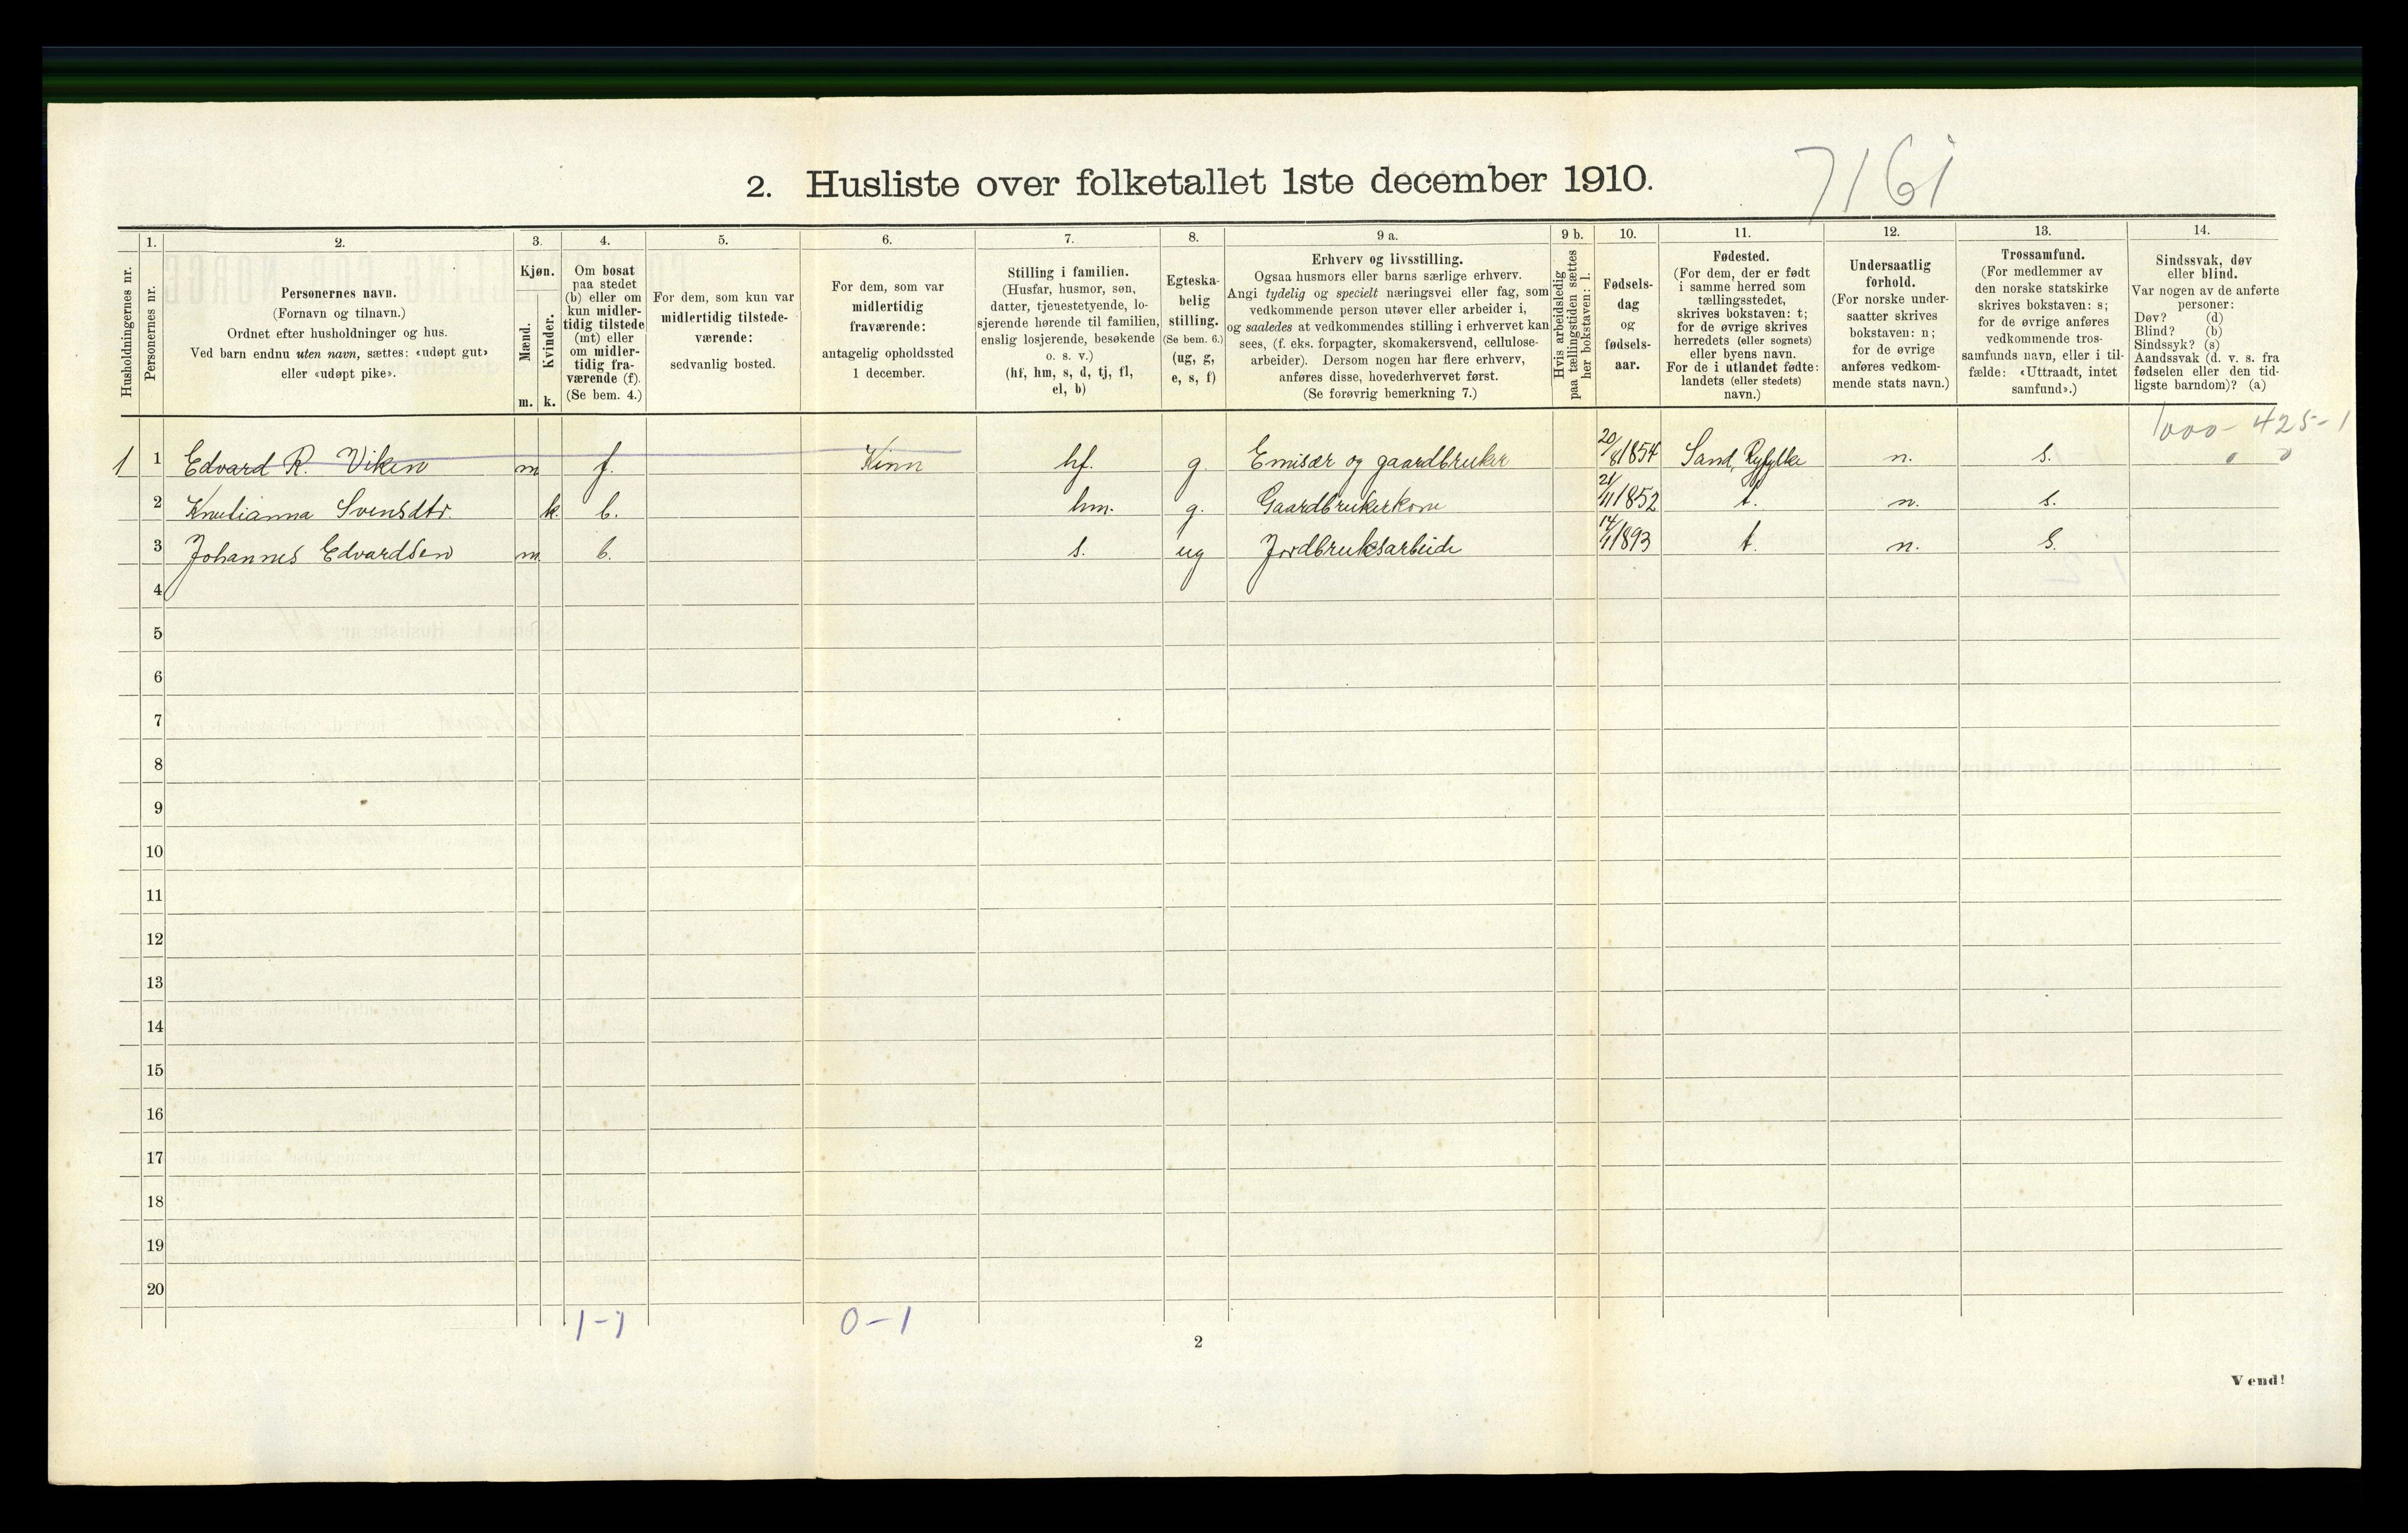 7161
2. Husliste over folketallet 1ste december 1910.
Husholdningernes nr.
1.
Personernes nr.
2.
Personernes navn.
(Fornavn og tilnavn.)
Ordnet efter husholdninger og hus.
Ved barn endnu uten navn, sættes: «udøpt gut»
eller «udøpt pike».
3.
Kjøn.
Mænd.
Kvinder.
m. k.
4.
Om bosat
paa stedet
(b) eller om
kun midler-
tidig tilstede
(mt) eller
om midler-
tidig fra-
værende (f).
(Se bem. 4.)
5.
For dem, som kun var
midlertidig tilstede-
værende:
sedvanlig bosted.
6.
For dem, som var
midlertidig
fraværende:
antagelig opholdssted
1 december.
7.
Stilling i familien.
(Husfar, husmor, søn,
datter, tjenestetyende, lo-
sjerende hørende til familien,
enslig losjerende, besøkende
o. s. v.)
(hf, hm, s, d, tj, fl,
el, b)
8.
Egteska-
belig
stilling.
(Se bem. 6.)
(ug, g,
e, s, f)
9 a.
Erhverv og livsstilling.
Ogsaa husmors eller barns særlige erhverv.
Angi tydelig og specielt næringsvei eller fag, som
vedkommende person utøver eller arbeider i,
og saaledes at vedkommendes stilling i erhvervet kan
sees, (f. eks. forpagter, skomakersvend, cellulose-
arbeider). Dersom nogen har flere erhverv,
anføres disse, hovederhvervet først.
(Se forøvrig bemerkning 7.)
9 b.
Hvis arbeidsledig
paa tællingstiden sættes
her bokstaven: l.
10.
Fødsels-
dag
og
fødsels-
aar.
11.
Fødested.
(For dem, der er født
i samme herred som
tællingsstedet,
skrives bokstaven: t;
for de øvrige skrives
herredets (eller sognets)
eller byens navn.
For de i utlandet fødte:
landets (eller stedets)
navn.)
12.
Undersaatlig
forhold.
(For norske under-
saatter skrives
bokstaven: n;
for de øvrige
anføres vedkom-
mende stats navn.)
13.
Trossamfund.
(For medlemmer av
den norske statskirke
skrives bokstaven: s;
for de øvrige anføres
vedkommende tros-
samfunds navn, eller i til-
fælde: «Uttraadt, intet
samfund».)
14.
Sindssvak, døv
eller blind.
Var nogen av de anførte
personer:
Døv? (d)
Blind? (b)
Sindssyk? (s)
Aandssvak (d. v. s. fra
fødselen eller den tid-
ligste barndom)? (a)
1000-425-1
0 0
1 1 Edvard R. Viken m f. Kinn hf. g. Emisær og gaardbruker 20/8 1854 Sand, Ryfylke n. s.
2 Knutianna Svensdtr. k. b. hm. g. Gaardbrukerkone 21/11 1852 t. n. s.
3 Johannes Edvardsen m. b. s. ug Jordbruksarbeide 14/1 1893 t. n. s.
4
5
6
7
8
9
10
11
12
13
14
15
16
17
18
19
20
1-1 0-1
2
Vend!